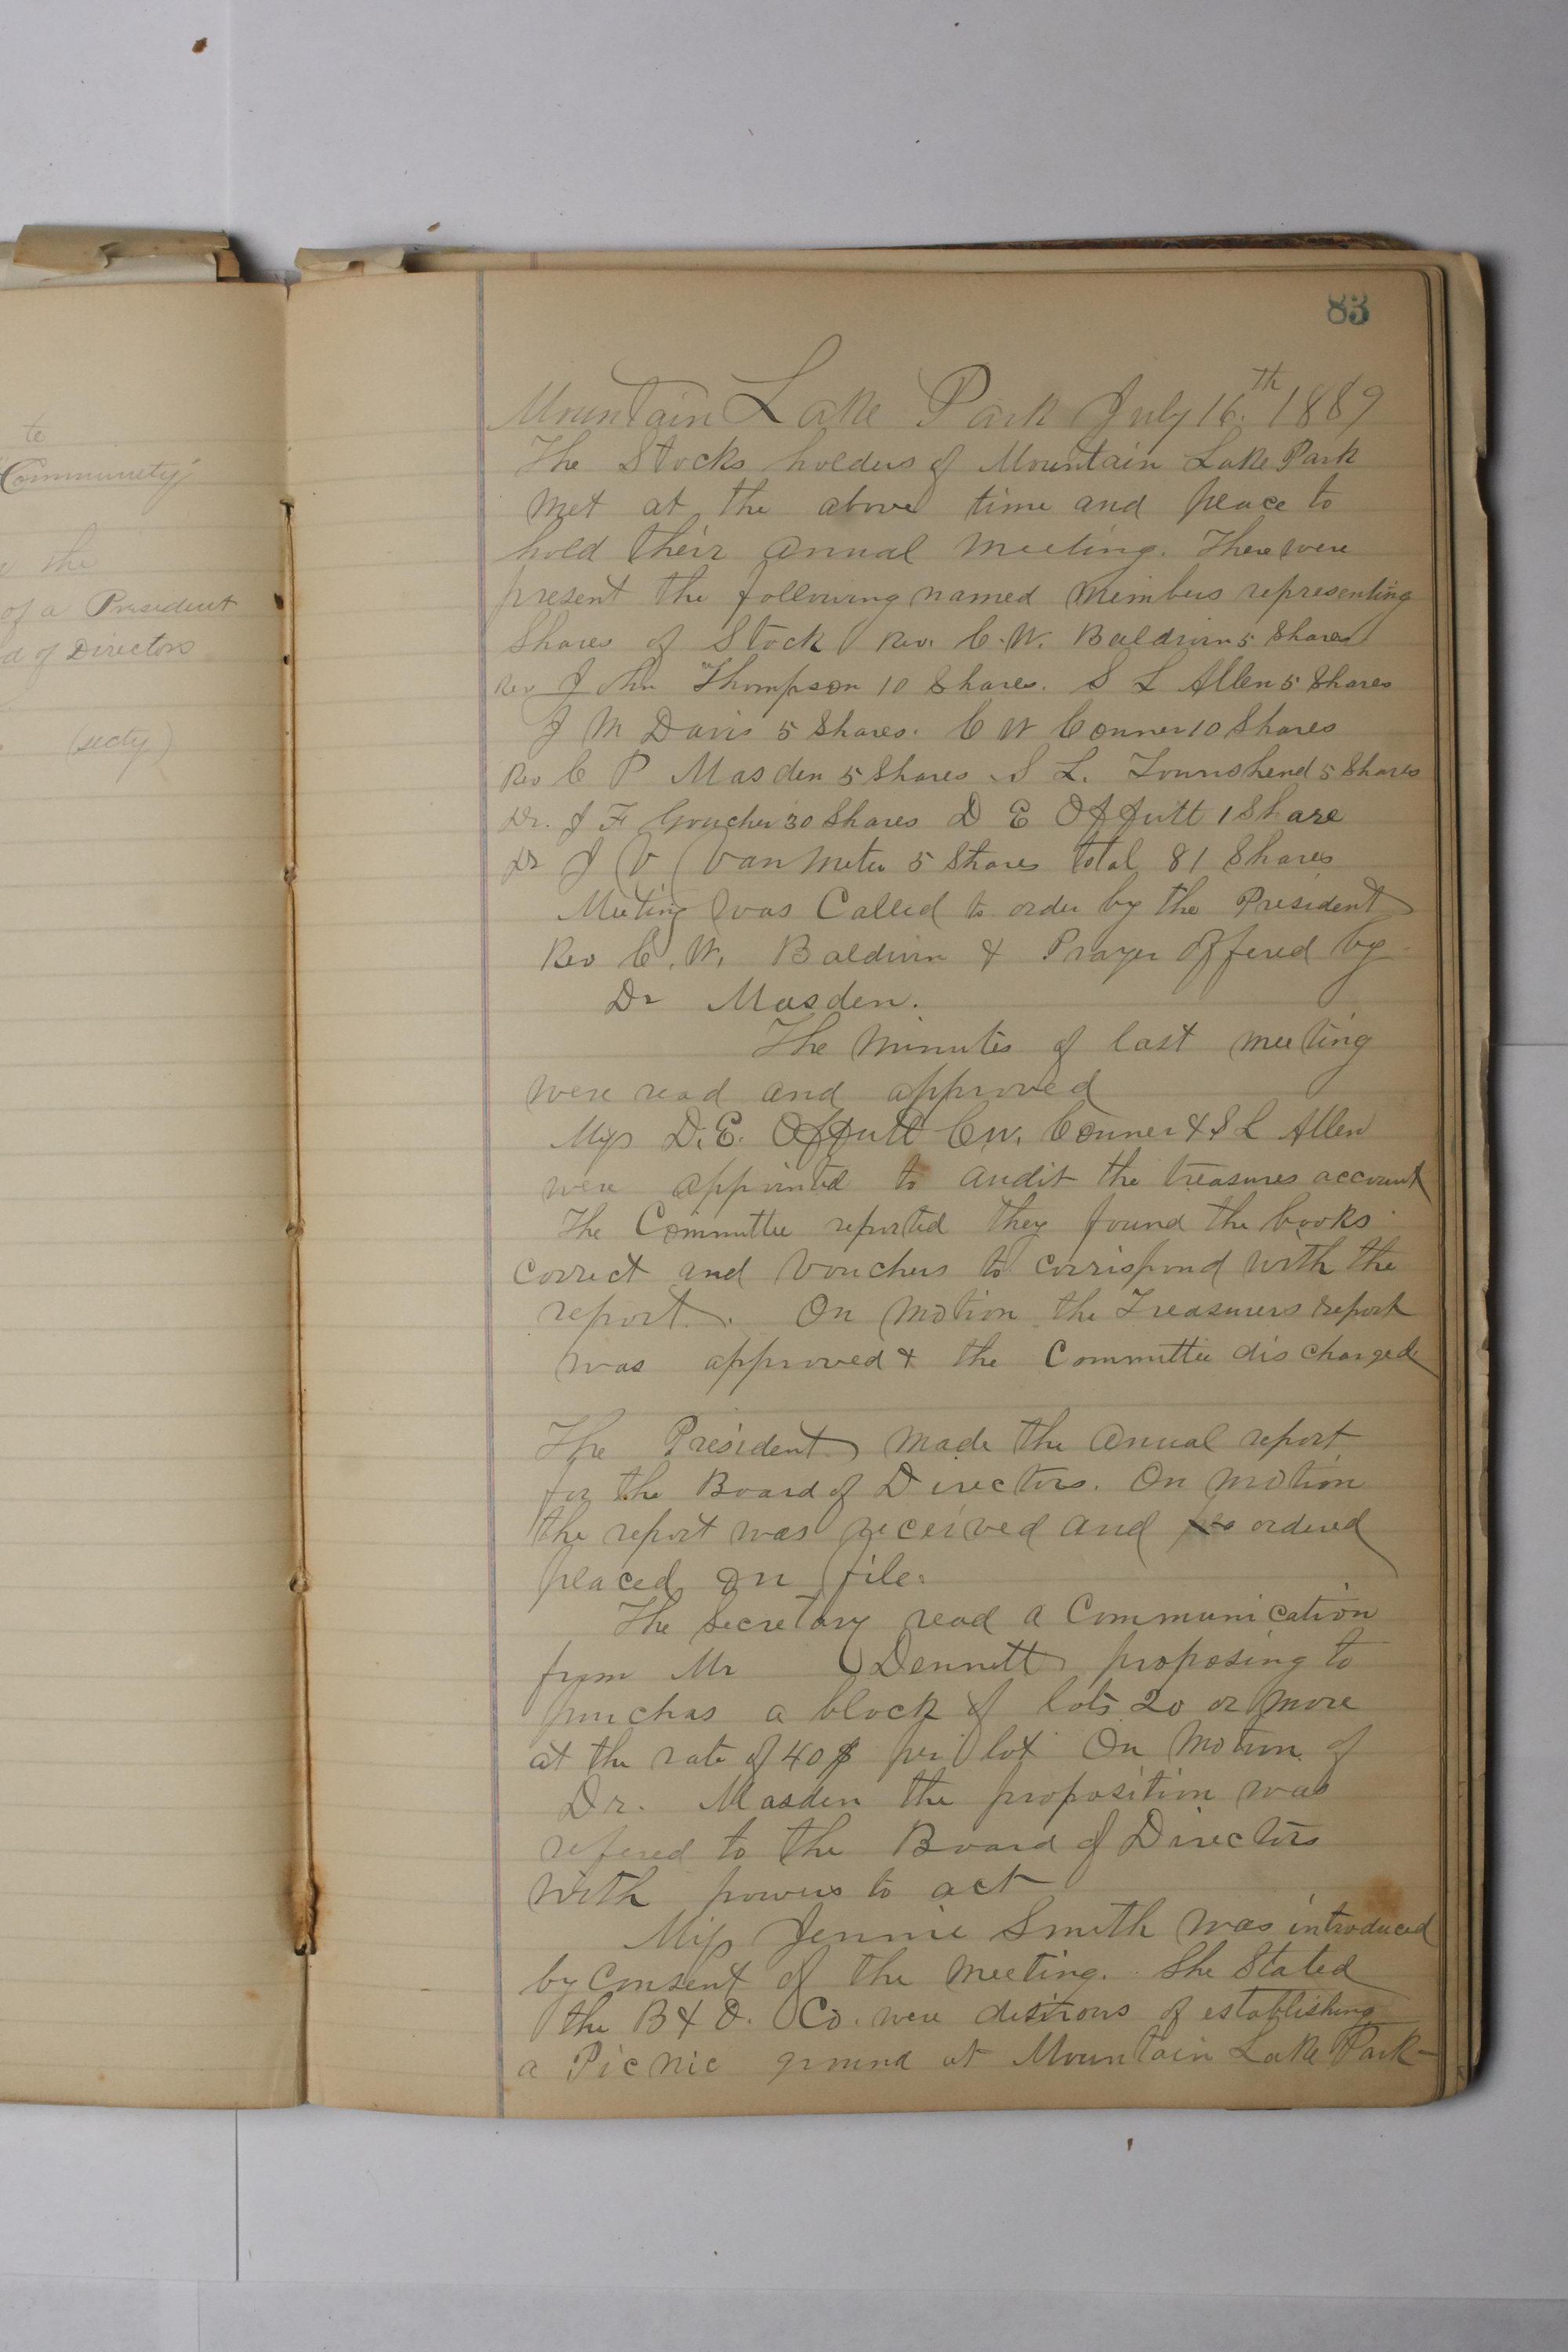 to
Community
the
of a President
d of Directors
(secty)
83
Mountain Lake Park July 16th 1889
The Stocks holders of Mountain Lake Park
met at the above time and place to
hold their annual meeting. There were
present the following named members representing
Shares of Stock Rev. C. W. Baldwin 5 Shares
Rev John Thompson 10 Shares. S L Allen 5 Shares
J M Davis 5 Shares. C W Conner 10 Shares
Rev C P Masden 5 Shares S L. Townshend 5 Shares
Dr. J F Goucher 30 Shares D E Offutt 1 Share
Dr J V Van Meter 5 Shares total 81 Shares
Meeting was Called to order by the President
Rev C. W. Baldwin & Prayer Offered by
Dr Masden.
The Minutes of last meeting
were read and approved
D. E. Offutt C W. Conner & S L Allen
were appointed to audit the treasures account
The Committee reported they found the books
correct and vouchers to corrispond with the
report. On Motion the Treasurers report
was approved & the Committee discharged
The President made the Annual report
for the Board of Directors. On motion
the report was received and ordered
placed on file.
The Secretary read a Communication
from Mr Dennett proposing to
purchas a block of lots 20 or more
at the rate of 40$ per lot On Motion of
Dr. Masden the proposition was
refered to the Board of Directors
with powers to act
Miss Jennie Smith was introduced
by Consent of the meeting. She Stated
the B & O. Co. were desirous of establishing
a Picnic ground at Mountain Lake Park